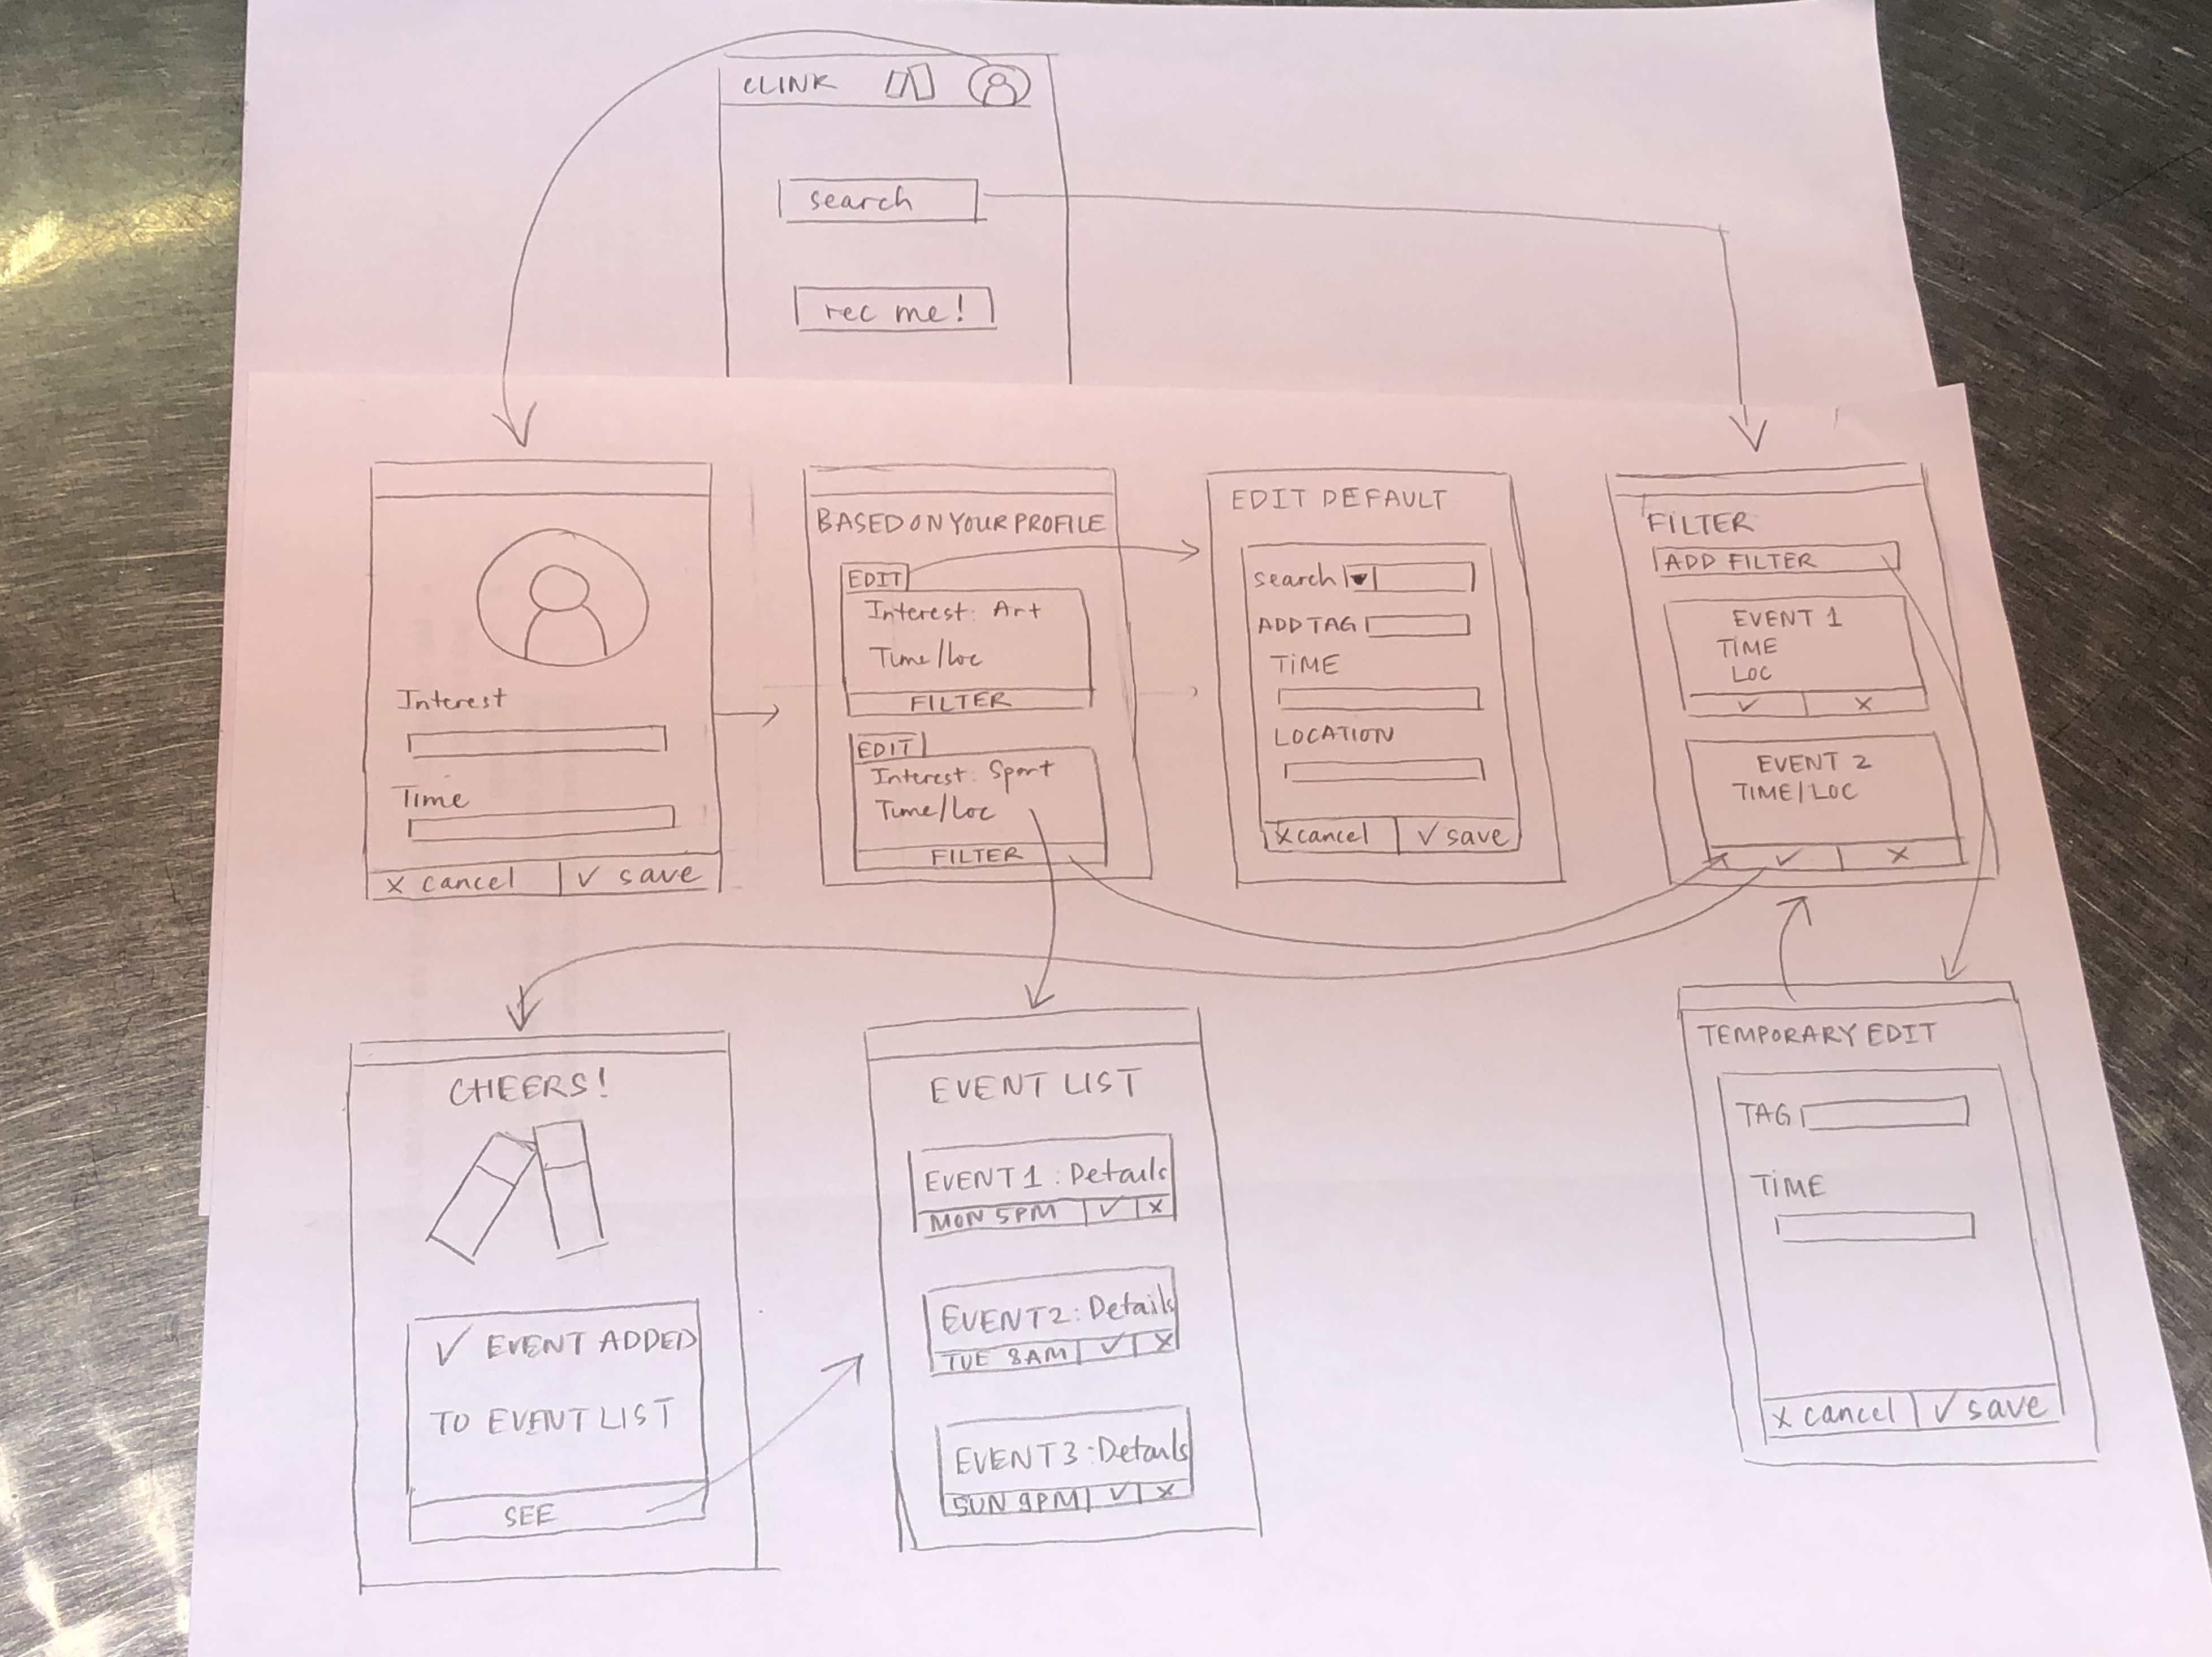 CLINK
search
rec me!
Interest
Time
x cancel
✓ save
BASED ON YOUR PROFILE
EDIT
Interest: Art
Time/Loc
FILTER
EDIT
Interest: Sport
Time/Loc
FILTER
EDIT DEFAULT
search
ADD TAG
TIME
LOCATION
x cancel
✓ save
FILTER
ADD FILTER
EVENT 1
TIME
LOC
✓ x
EVENT 2
TIME/LOC
✓ x
CHEERS!
✓ EVENT ADDED
TO EVENT LIST
SEE
EVENT LIST
EVENT 1: Details
MON 5PM ✓ x
EVENT 2: Details
TUE 8AM ✓ x
EVENT 3: Details
SUN 9PM ✓ x
TEMPORARY EDIT
TAG
TIME
x cancel
✓ save